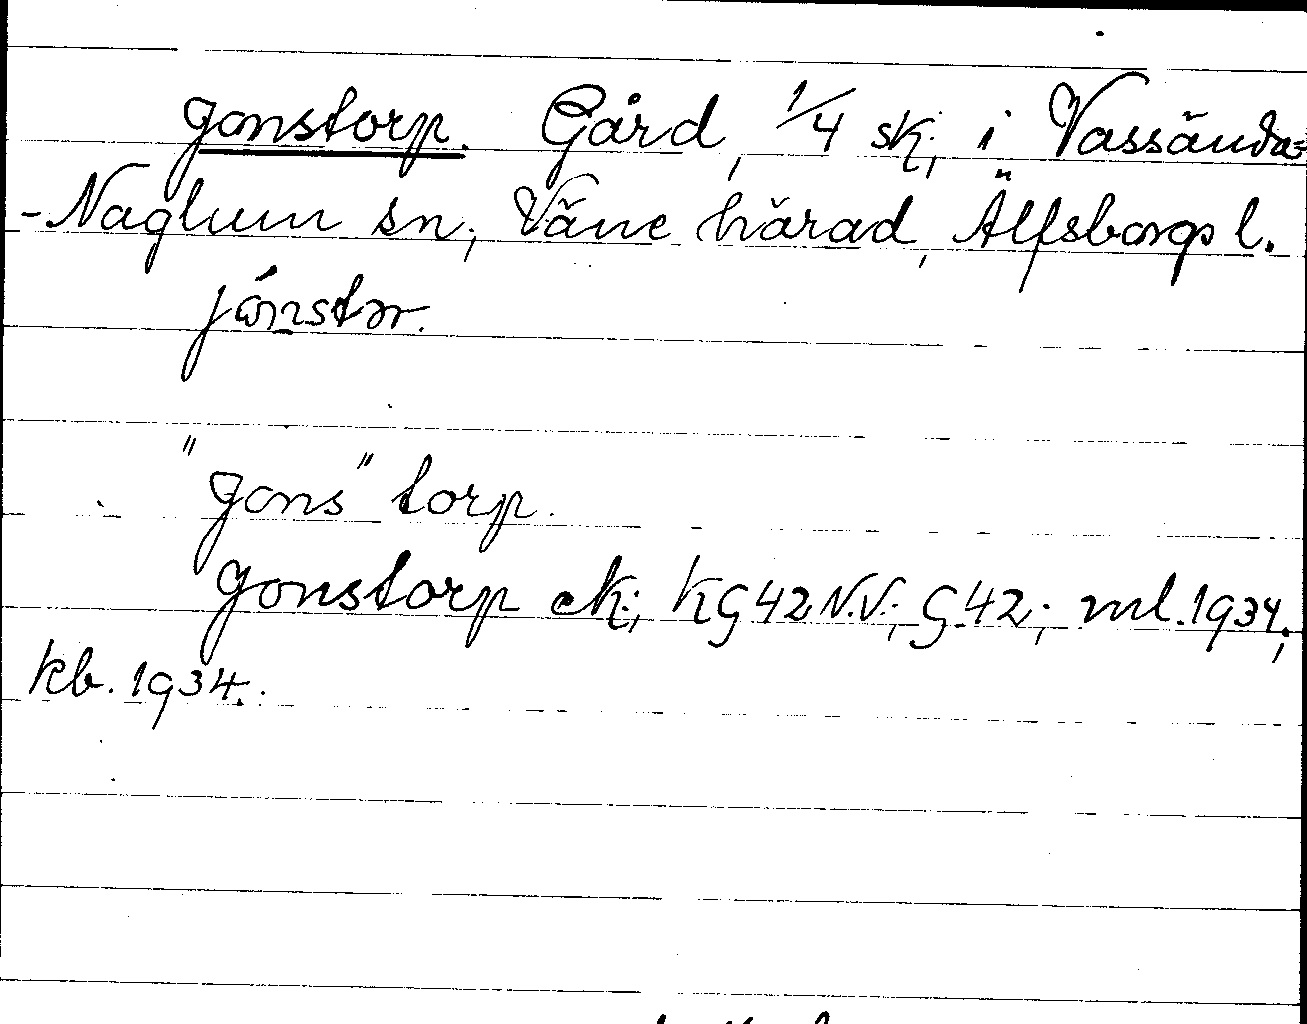 Jonstorp. Gård, 1/4 sk., i Vassända=
-Naglum sn, Väne härad, Älfsborgs l.
jónstər.
"Jons" torp.
Jonstorp ek.; KG42N.V.; G.42; ml.1934;
kb. 1934.